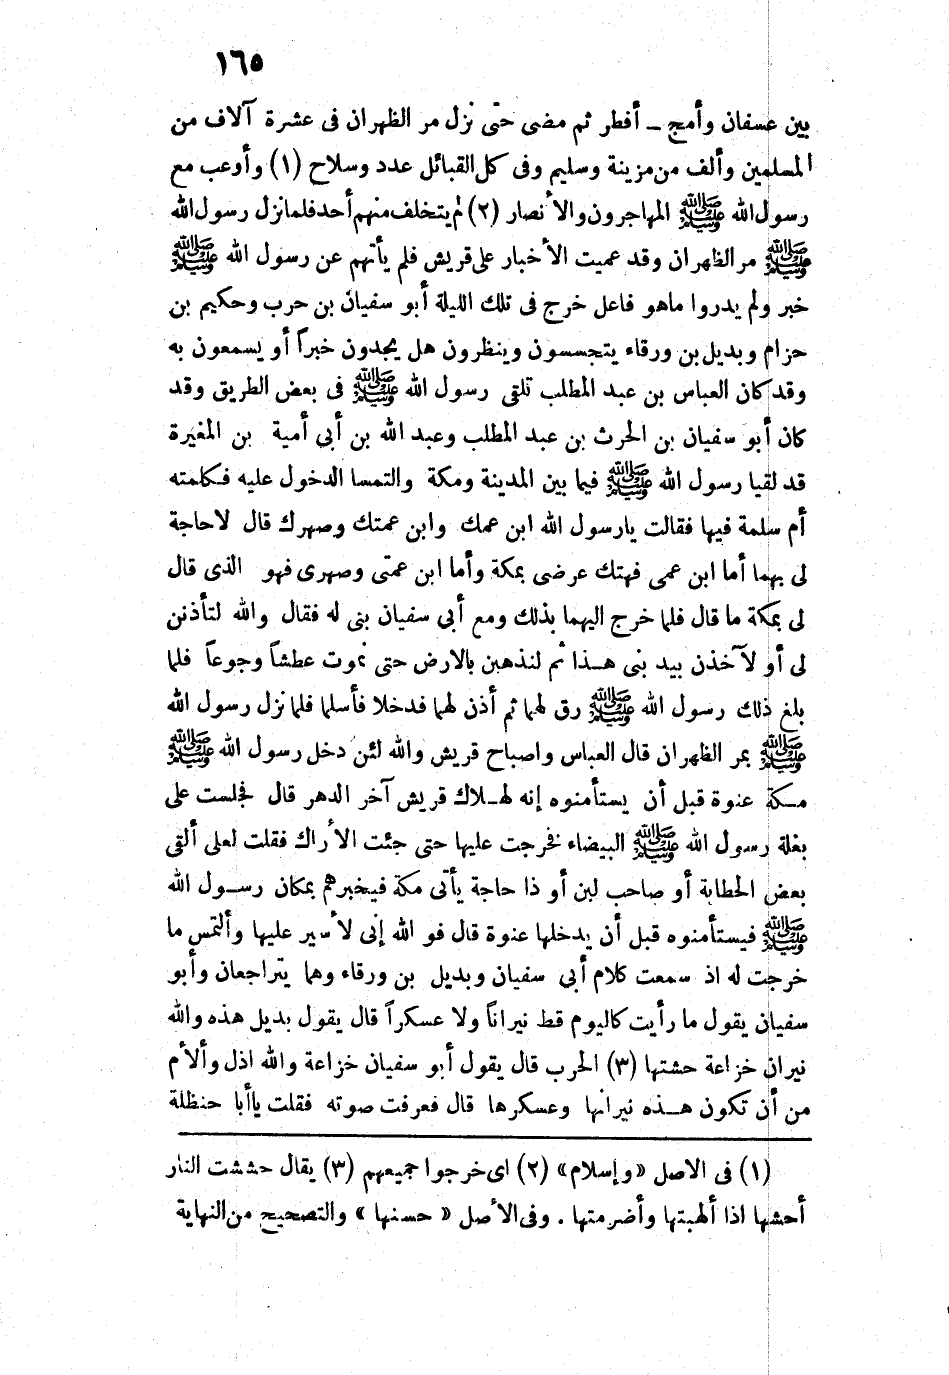 ١٦٥
بين عسفان وأمج ــ أفطر ثم مضى حتى نزل مر الظهران فى عشرة آلاف من
المسلمين وألف من مزينة وسليم وفى كل القبائل عدد وسلاح (١) وأوعب مع
رسول الله ﷺ المهاجرون والأنصار (٢) لم يتخلف منهم أحد فلما نزل رسول الله
ﷺ مر الظهران وقد عميت الأخبار على قريش فلم يأتهم عن رسول الله ﷺ
خبر ولم يدروا ماهو فاعل خرج فى تلك الليلة أبو سفيان بن حرب وحكيم بن
حزام وبديل بن ورقاء يتجسسون وينظرون هل يجدون خبراً أو يسمعون به
وقد كان العباس بن عبد المطلب تلقى رسول الله ﷺ فى بعض الطريق وقد
كان أبو سفيان بن الحرث بن عبد المطلب وعبد الله بن أبى أمية بن المغيرة
قد لقيا رسول الله ﷺ فيما بين المدينة ومكة والتمسا الدخول عليه فكلمته
أم سلمة فيها فقالت يارسول الله ابن عمك وابن عمتك وصهرك قال لاحاجة
لى بهما أما ابن عمى فهتك عرضى بمكة وأما ابن عمتى وصهرى فهو الذى قال
لى بمكة ما قال فلما خرج اليهما بذلك ومع أبى سفيان بنى له فقال والله لتأذنن
لى أو لآخذن بيد بنى هـذا ثم لنذهبن بالارض حتى نموت عطشاً وجوعاً فلما
بلغ ذلك رسول الله ﷺ رق لهما ثم أذن لهما فدخلا فأسلما فلما نزل رسول الله
ﷺ بمر الظهران قال العباس واصباح قريش والله لئن دخل رسول الله ﷺ
مكة عنوة قبل أن يستأمنوه إنه لهلاك قريش آخر الدهر قال فجلست على
بغلة رسول الله ﷺ البيضاء فخرجت عليها حتى جئت الأراك فقلت لعلى ألقى
بعض الحطابة أو صاحب لبن أو ذا حاجة يأتى مكة فيخبرهم بمكان رسول الله
ﷺ فيستأمنوه قبل أن يدخلها عنوة قال فو الله إنى لأسير عليها وألتمس ما
خرجت له اذ سمعت كلام أبى سفيان وبديل بن ورقاء وهما يتراجعان وأبو
سفيان يقول ما رأيت كاليوم قط نيراناً ولا عسكراً قال يقول بديل هذه والله
نيران خزاعة حشتها (٣) الحرب قال يقول أبو سفيان خزاعة والله اذل وألأم
من أن تكون هـذه نيرانها وعسكرها قال فعرفت صوته فقلت ياأبا حنظلة
(١) فى الاصل «وإسلام» (٢) اى خرجوا جميعهم (٣) يقال حششت النار
أحشها اذا ألهبتها وأضرمتها . وفى الأصل « حسنها » والتصحيح من النهاية